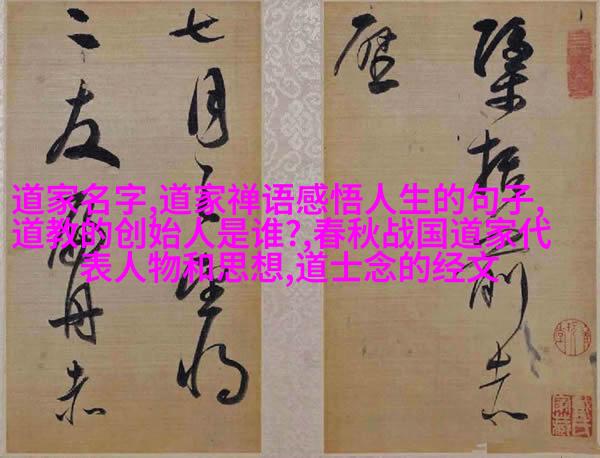 道家名字,道家禅语感悟人生的句子,
道教的创始人是谁?,春秋战国道家代
表人物和思想,道士念的经文
前赤
壁
七月之望将
二友扁舟赤